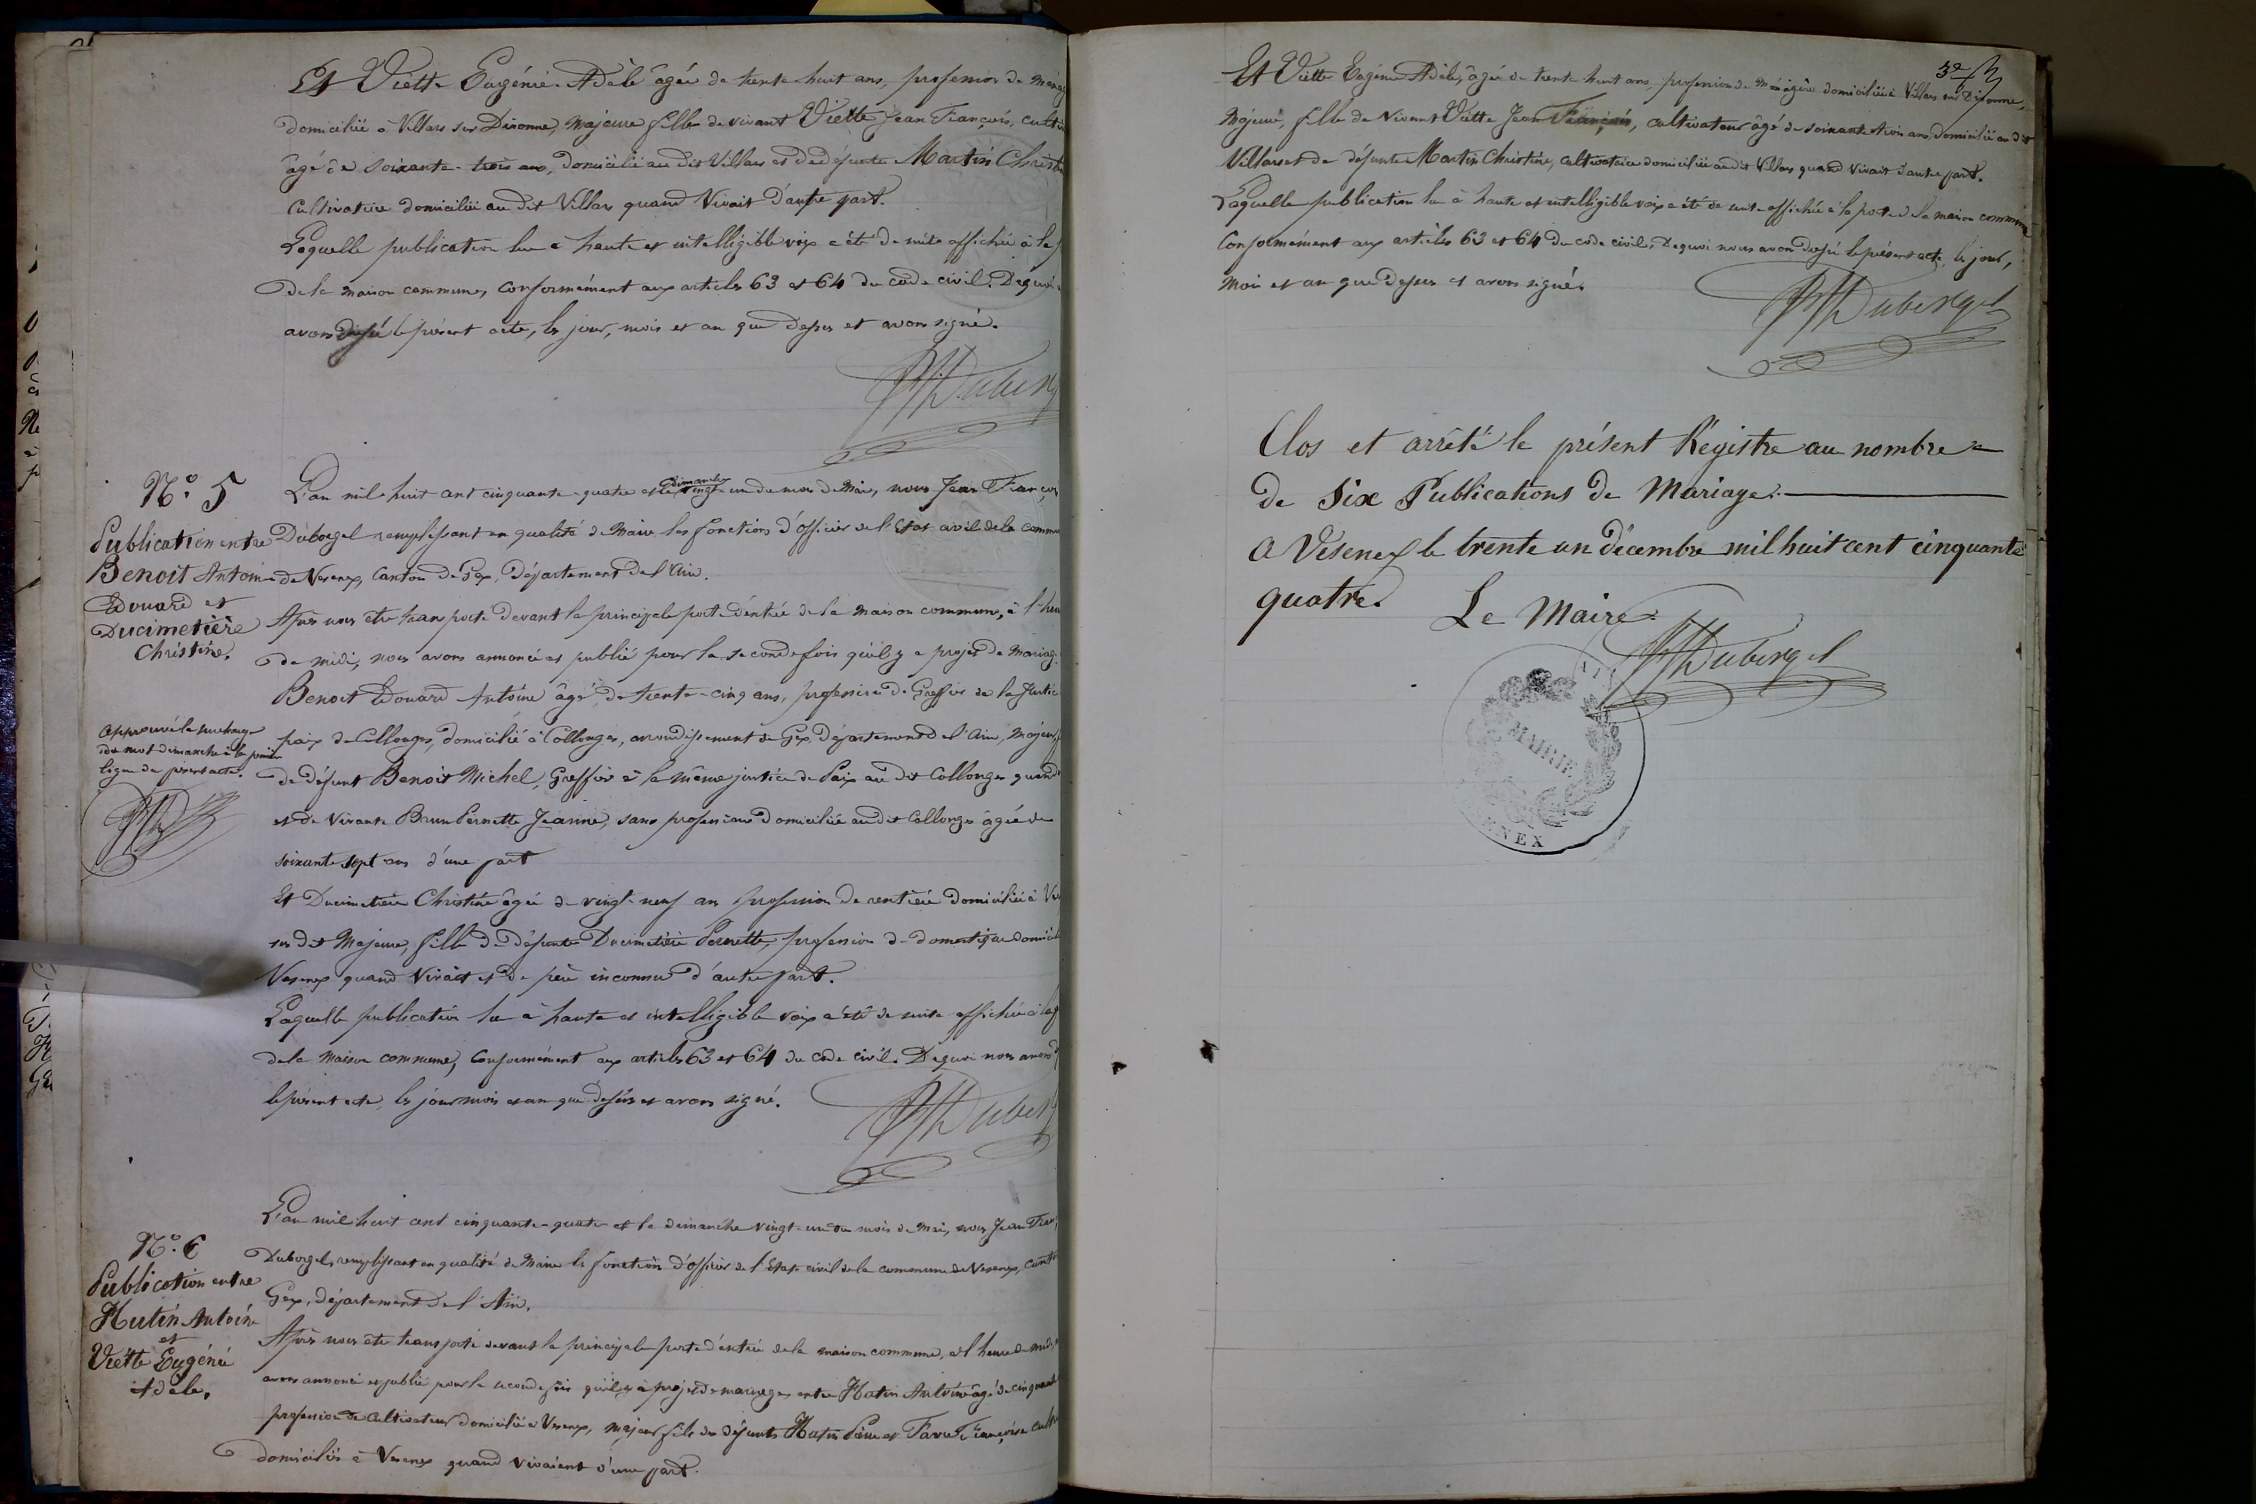 Et Viette Eugénie Adèle âgée de trente huit ans, profession de
domiciliée à Villars sur Divonne, majeure fille de vivant Viette Jean François,
âgé de soixante-trois ans, domicilié au dit Villars et de défunte Martin
Cultivatrice domiciliée au dit Villars quand Vivait d'autre part.
Laquelle publication lue à haute et intelligible voix a été de suite affichée à la
de la maison commune, conformément aux articles 63 et 64 du code civil. De quoi
avons dressé le présent acte, les jour, mois et an que dessus et avons signé.
N.° 5
Publication entre
Benoit Antoine
Edouard et
Ducimetière
Christine.
L'an mil huit cent cinquante-quatre et le dimanche vingt-un du mois de Mai, nous Jean
Duborgel remplissant en qualité de Maire les fonctions d'officier de l'Etat civil de la
de Vesenex, Canton de Gex, Département de l'Ain.
Après nous être transporté devant la principale porte d'entrée de la maison commune, à
de midi, nous avons annoncé et publié pour la seconde fois qu'il y a projet de
Benoit Edouard Antoine âgé de trente-cinq ans, profession de Greffier de la
paix de Collonges, domicilié à Collonges, arrondissement de Gex, Département de l'Ain,
de défunt Benoit Michel, Greffier à la même justice de Paix au dit Collonges quand
et de vivante Brun Pernette Jeanne, sans profession domiciliée au dit Collonges âgée de
soixante sept ans d'une part
Approuvé la surcharge
du mot dimanche à la première
ligne du présent acte.
Et Ducimetière Christine âgée de vingt-neuf ans profession de rentière domiciliée à
sus dit Majeure, fille de défunte Ducimetière Pernette, profession de domestique
Vesenex quand Vivait et de père inconnu d'autre part.
Laquelle publication lue à haute et intelligible voix a été de suite affichée à la
de la maison commune, conformément aux articles 63 et 64 du code civil. De quoi nous avons
le présent acte, les jour mois et an que dessus et avons signé.
N.° 6
Publication entre
Hutin Antoine
et
Viette Eugénie
Adèle.
L'an mil huit cent cinquante-quatre et le dimanche vingt-un du mois de Mai, nous Jean
Duborgel, remplissant en qualité de Maire les fonctions d'officier de l'Etat civil de la commune de Vesenex,
Gex, département de l'Ain.
Après nous être transporté devant la principale porte d'entrée de la maison commune, à l'heure de
avons annoncé et publié pour la seconde fois qu'il y a projet de mariage, entre Hutin Antoine âgé de
profession de Cultivateur domicilié à Vesenex, majeur fils des défunts Hutin Pierre et Favre Françoise
domiciliés à Vesenex quand vivaient d'une part.
Et Viette Eugénie Adèle, âgée de trente huit ans, profession de Ménagère domiciliée à Villars sur Divonne,
Majeure, fille de Vivant Viette Jean François, cultivateur âgé de soixante trois ans, domicilié au dit
Villars et de défunte Martin Christine, cultivatrice domiciliée au dit Villars quand Vivait d'autre part.
Laquelle publication lue à haute et intelligible voix a été de suite affichée à la porte de la maison commune
Conformément aux articles 63 et 64 du code civil, De quoi nous avons dressé le présent acte, les jour,
mois et an que dessus et avons signé.
Dubergel
Clos et arrêté le présent Régistre au nombre
de Six Publications de Mariage.
A Vésenex le trente un décembre mil huit cent cinquante
quatre. Le Maire
Dubergel
MAIRIE